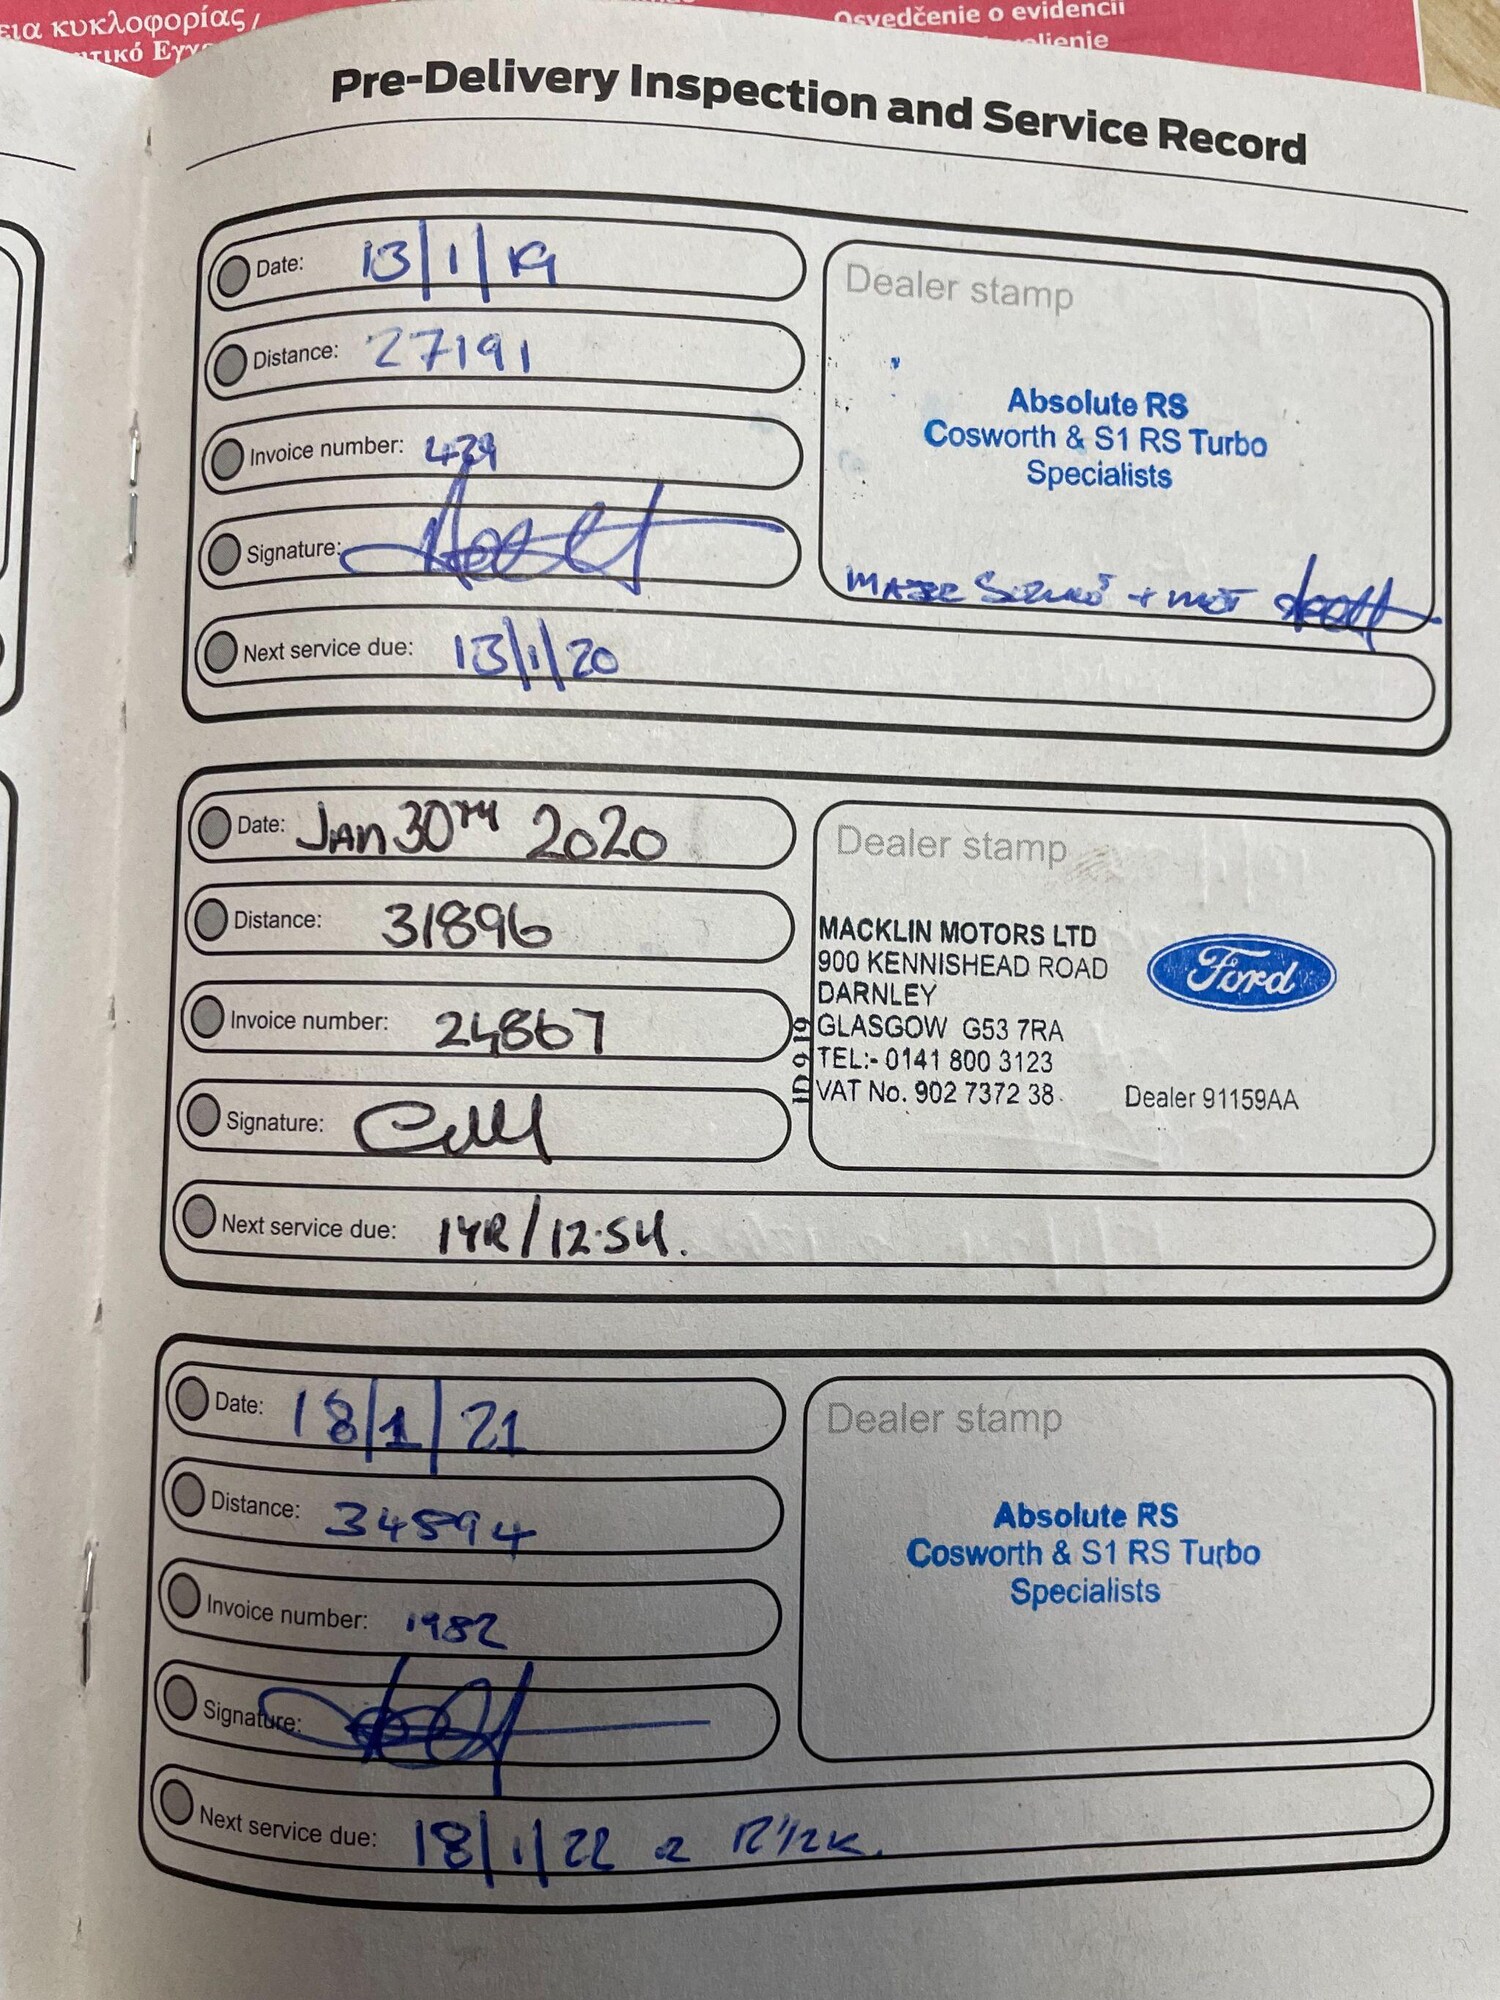 εια κυκλοφορίας /
Osvedčenie o evidencii
Pre-Delivery Inspection and Service Record
Date: 13/1/19
Distance: 27191
Invoice number:
Signature:
Next service due: 13/1/20
Dealer stamp
Absolute RS
Cosworth & S1 RS Turbo
Specialists
+ MOT
Date: JAN 30TH 2020
Distance: 31896
Invoice number: 24867
Signature:
Next service due: 1YR/12.5K.
Dealer stamp
MACKLIN MOTORS LTD
900 KENNISHEAD ROAD
DARNLEY
GLASGOW G53 7RA
TEL:- 0141 800 3123
VAT No. 902 7372 38
Ford
Dealer 91159AA
ID 9 19
Date: 18/1/21
Distance: 34594
Invoice number: 1982
Signature:
Next service due: 18/1/22 12 1/2K.
Dealer stamp
Absolute RS
Cosworth & S1 RS Turbo
Specialists